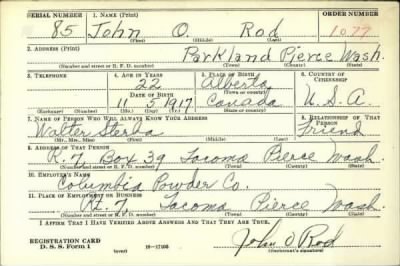 SERIAL NUMBER 1. NAME (Print) ORDER NUMBER
85 John O. Rod 1077
(First) (Middle) (Last)
2. ADDRESS (Print)
Parkland Pierce Wash.
(Number and street or R. F. D. number) (Town) (County) (State)
3. TELEPHONE 4. AGE IN YEARS 5. PLACE OF BIRTH 6. COUNTRY OF CITIZENSHIP
22 Alberta
DATE OF BIRTH (Town or county)
11 5 1917 Canada U.S.A.
(Exchange) (Number) (Mo.) (Day) (Yr.) (State or country)
7. NAME OF PERSON WHO WILL ALWAYS KNOW YOUR ADDRESS 8. RELATIONSHIP OF THAT PERSON
Walter Sterba Friend
(Mr., Mrs., Miss) (First) (Middle) (Last)
9. ADDRESS OF THAT PERSON
R.7, Box 39 Tacoma Pierce Wash
(Number and street or R. F. D. number) (Town) (County) (State)
10. EMPLOYER'S NAME
Columbia Powder Co.
11. PLACE OF EMPLOYMENT OR BUSINESS
Rt. 7, Tacoma Pierce Wash.
(Number and street or R. F. D. number) (Town) (County) (State)
I AFFIRM THAT I HAVE VERIFIED ABOVE ANSWERS AND THAT THEY ARE TRUE.
REGISTRATION CARD John O Rod
D. S. S. Form 1 (over) 16-17105 (Registrant's signature)